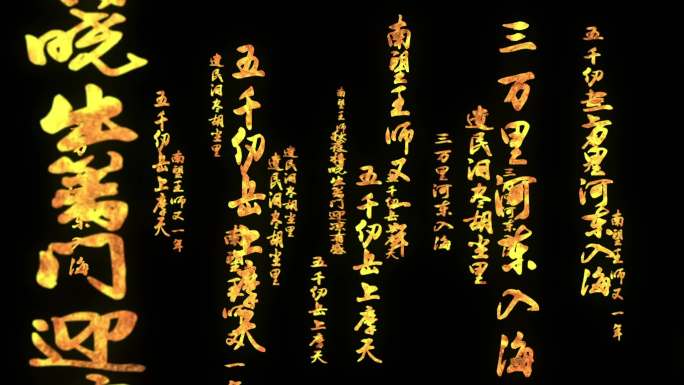 南望王师又一年
五千仞
三万里河东入海
三万里河东入海
三万里河东入海
遗民泪尽胡尘里
三万里河东入海
南望王师又一年
五千仞岳上摩天
五千仞岳上摩天
南望王师
秋夜将晓出篱门迎凉有感
五千仞岳上摩天
遗民泪尽胡尘里
遗民泪尽胡尘里
五千仞岳上摩天
南望王师又一年
遗民泪尽胡尘里
南望王师又一年
五千仞岳上摩天
晓出篱门迎
入海